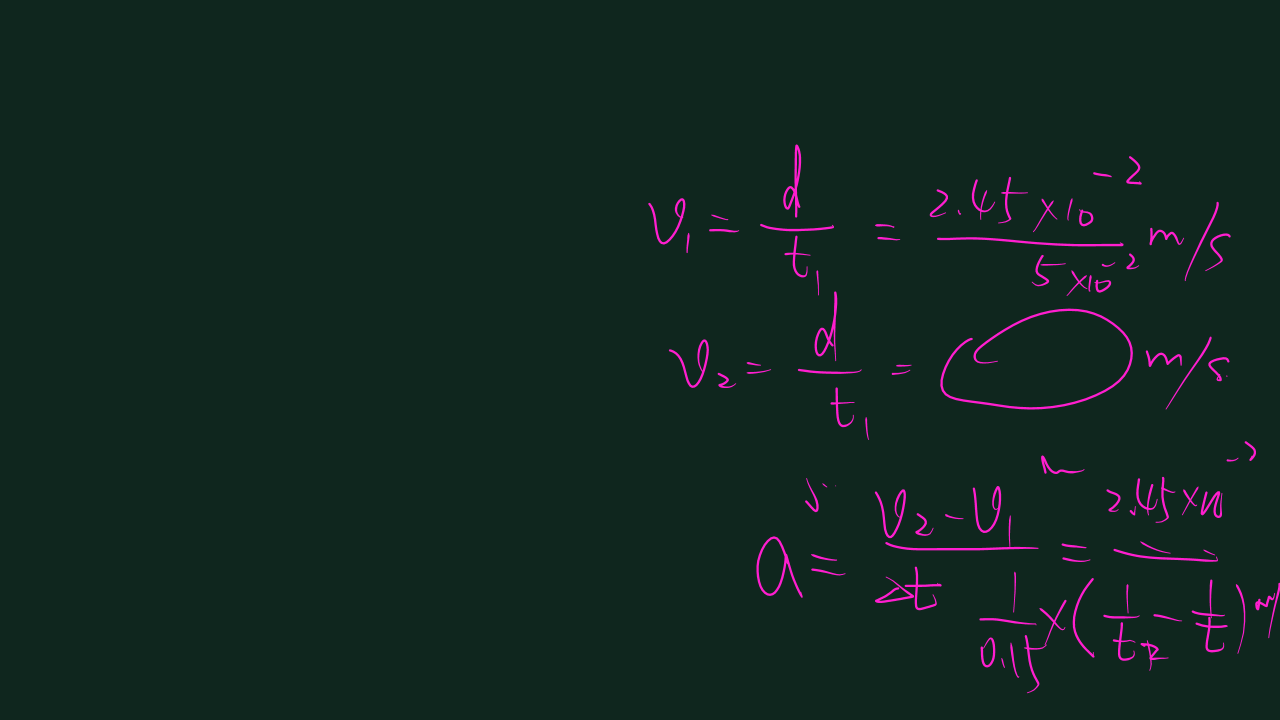 v₁ = d/t₁ = 2.45×10⁻²/5×10⁻² m/s
v₂ = d/t₁ = m/s
a = v₂-v₁/Δt = 2.45×10
1/0.15 × (1/t₂ - 1/t) m/